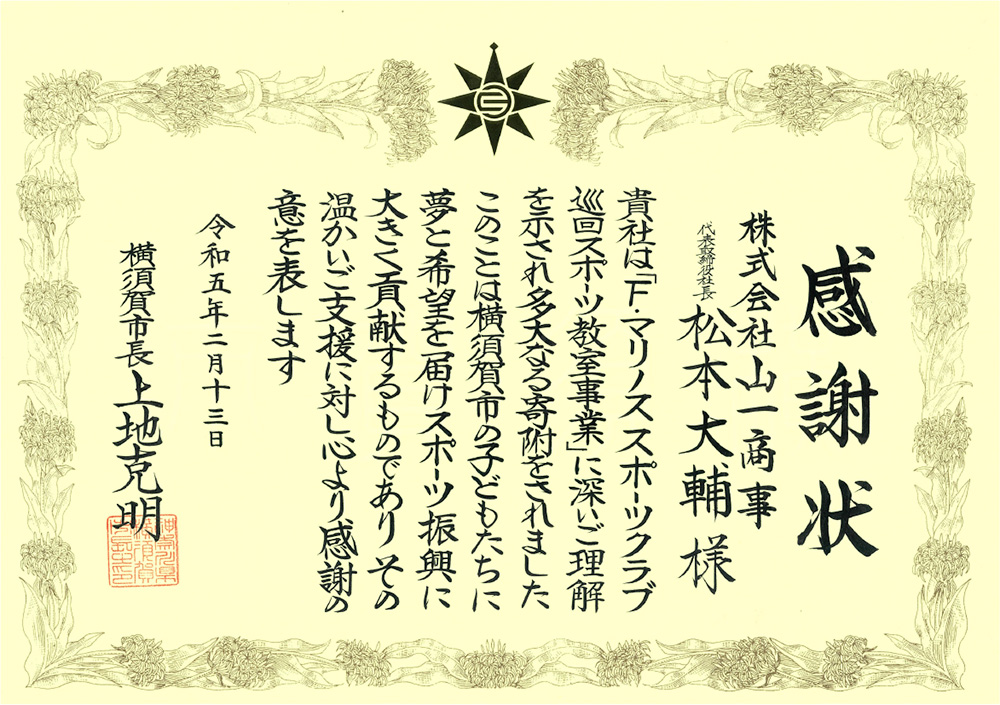 感謝状
株式会社山一商事
代表取締役社長 松本大輔様
貴社は「F・マリノススポーツクラブ
巡回スポーツ教室事業」に深いご理解
を示され多大なる寄附をされました
このことは横須賀市の子どもたちに
夢と希望を届けスポーツ振興に
大きく貢献するものであり その
温かいご支援に対し心より感謝の
意を表します
令和五年二月十三日
横須賀市長 上地克明